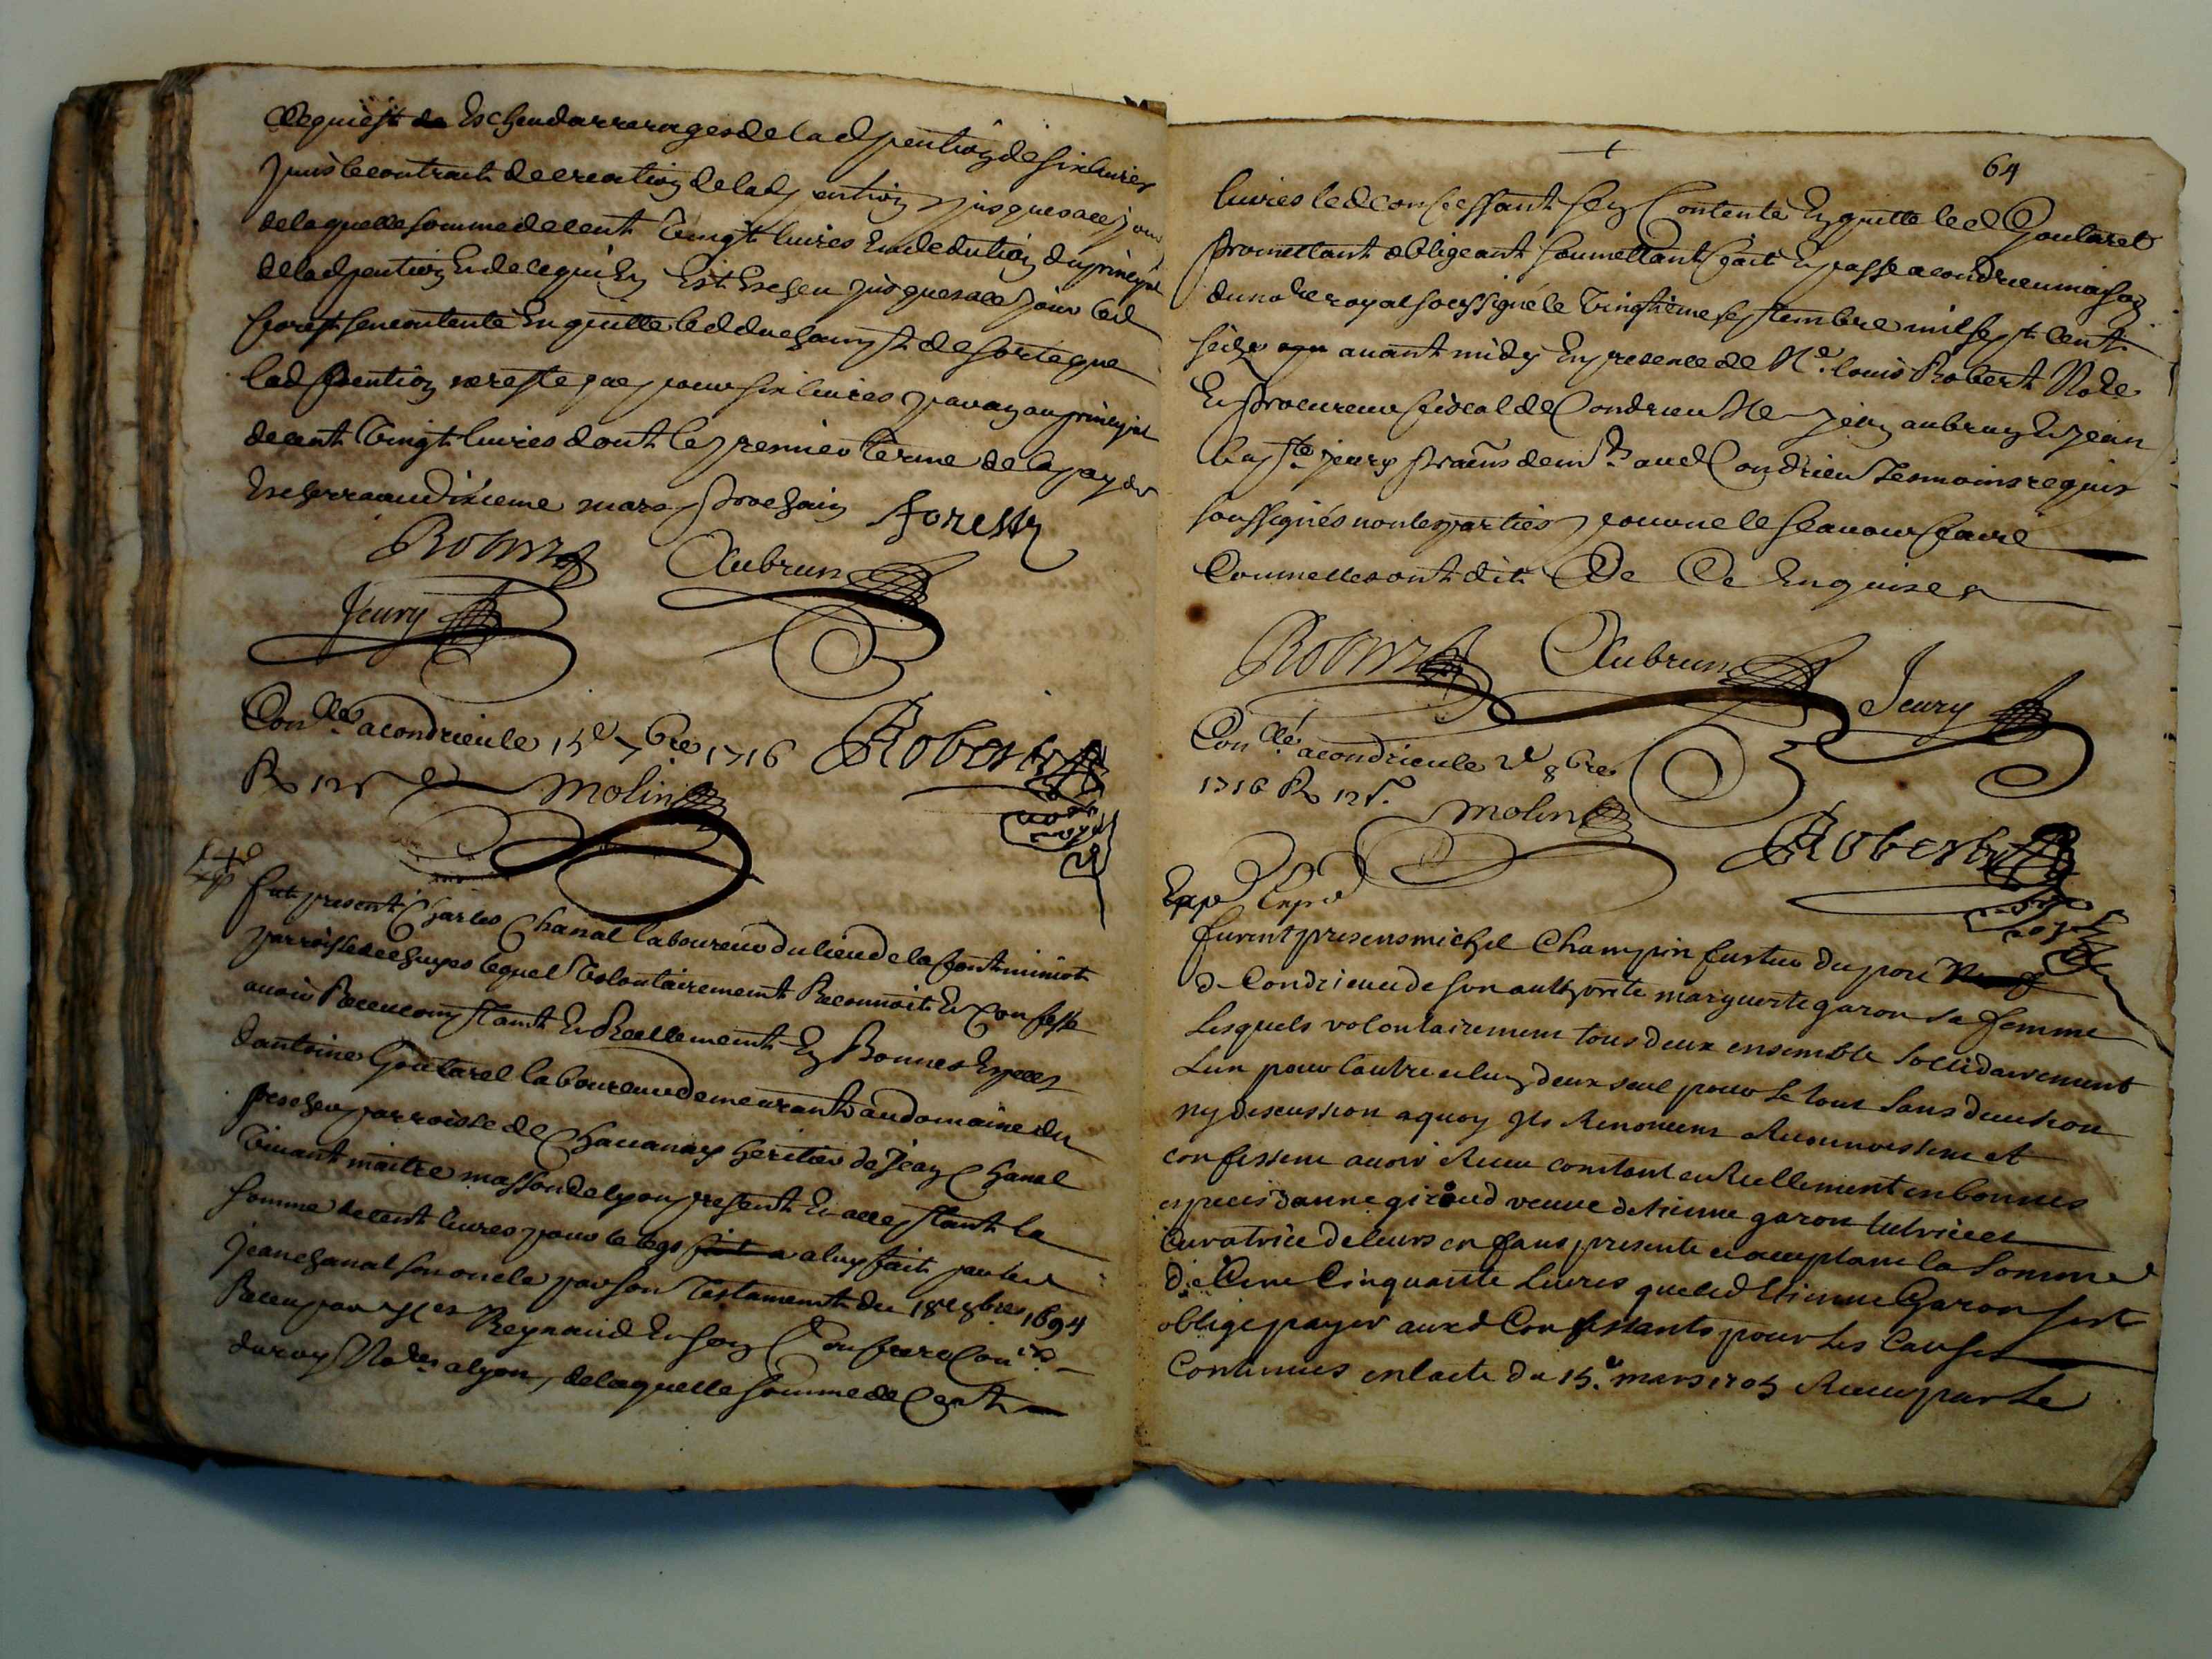 de qui est de Escheu darrerages de lad pention de six livres
puis le contract de creation de lad pention jusques a ce jour
de laquelle somme de cent vingt livres en dedution du principal
de lad pention et de ce qui en est Escheu jusques a ce jour led
forest sen contente en quitte led de sorte que
lad pention ne reste que pour six livres par an au principal
de cent vingt livres dont le premier terme de la paye
Escherra au dixieme mars prochain foresty
Robert Aubrun
Jeury
Con.llé a condrieu le 15e 7bre 1716 Robert
R 12 s molin
fut present Charles Chanal laboureur du lieu de la font
parroisse de chuyes lequel volontairement Reconnoit Et Confesse
avoir Receu comptant Et Reellement En Bonnes Especes
dantoine Goutarel laboureur demeurant au domaine du
parroisse de Chavanay heritier de Jean Chanal
vivant maitre masson de lyon present Et acceptant la
somme de cent livres pour le legs fait a a luy fait par led
Jean chanal son oncle par son Testament du 18e 8bre 1694
Receu par Mes Reynaud Et son Confrere Con.rs
du roy No.res a lyon, de laquelle somme de Cent
64
livres led confessant sen Contente En quitte led Goutarel
promettant obligeant soumettant fait Et passé a condrieu maison
du no.re royal soussigné le vingtieme septembre mil sept cent
seize avant midy En presence de Me. louis Robert No.re
Et procureur fiscal de Condrieu Me jean aubrun Et jean
bap.te jeury pra.ns dem.ts aud Condrieu Tesmoins requis
soussignés non les parties pour ne le scavoir faire
Comme elles ont dit De Ce Enquises
Robert Aubrun Jeury
Con.llé a condrieu le 2e 8bre
1716 R 12 s. molin
Robert
Expé Expé
furent presens michel Champin du port
de Condrieu et de son authorité marguerite garon sa femme
Lesquels volontairement tous deux ensemble sollidairement
Lun pour lautre et lun deux seul pour le tout sans division
ny discussion a quoy ils Renoncent Reconnoissent et
confessent avoir Receu comptant et Reellement en bonnes
especes danne giroud veuve detienne garon tutrice et
Curatrice de leurs enfans presente et acceptant la somme
de Cent Cinquante Livres que led Etienne Garon sest
obligé payer auxd Confessants pour les Causes
Contenues en lacte du 15e mars 1705 Receu par Le